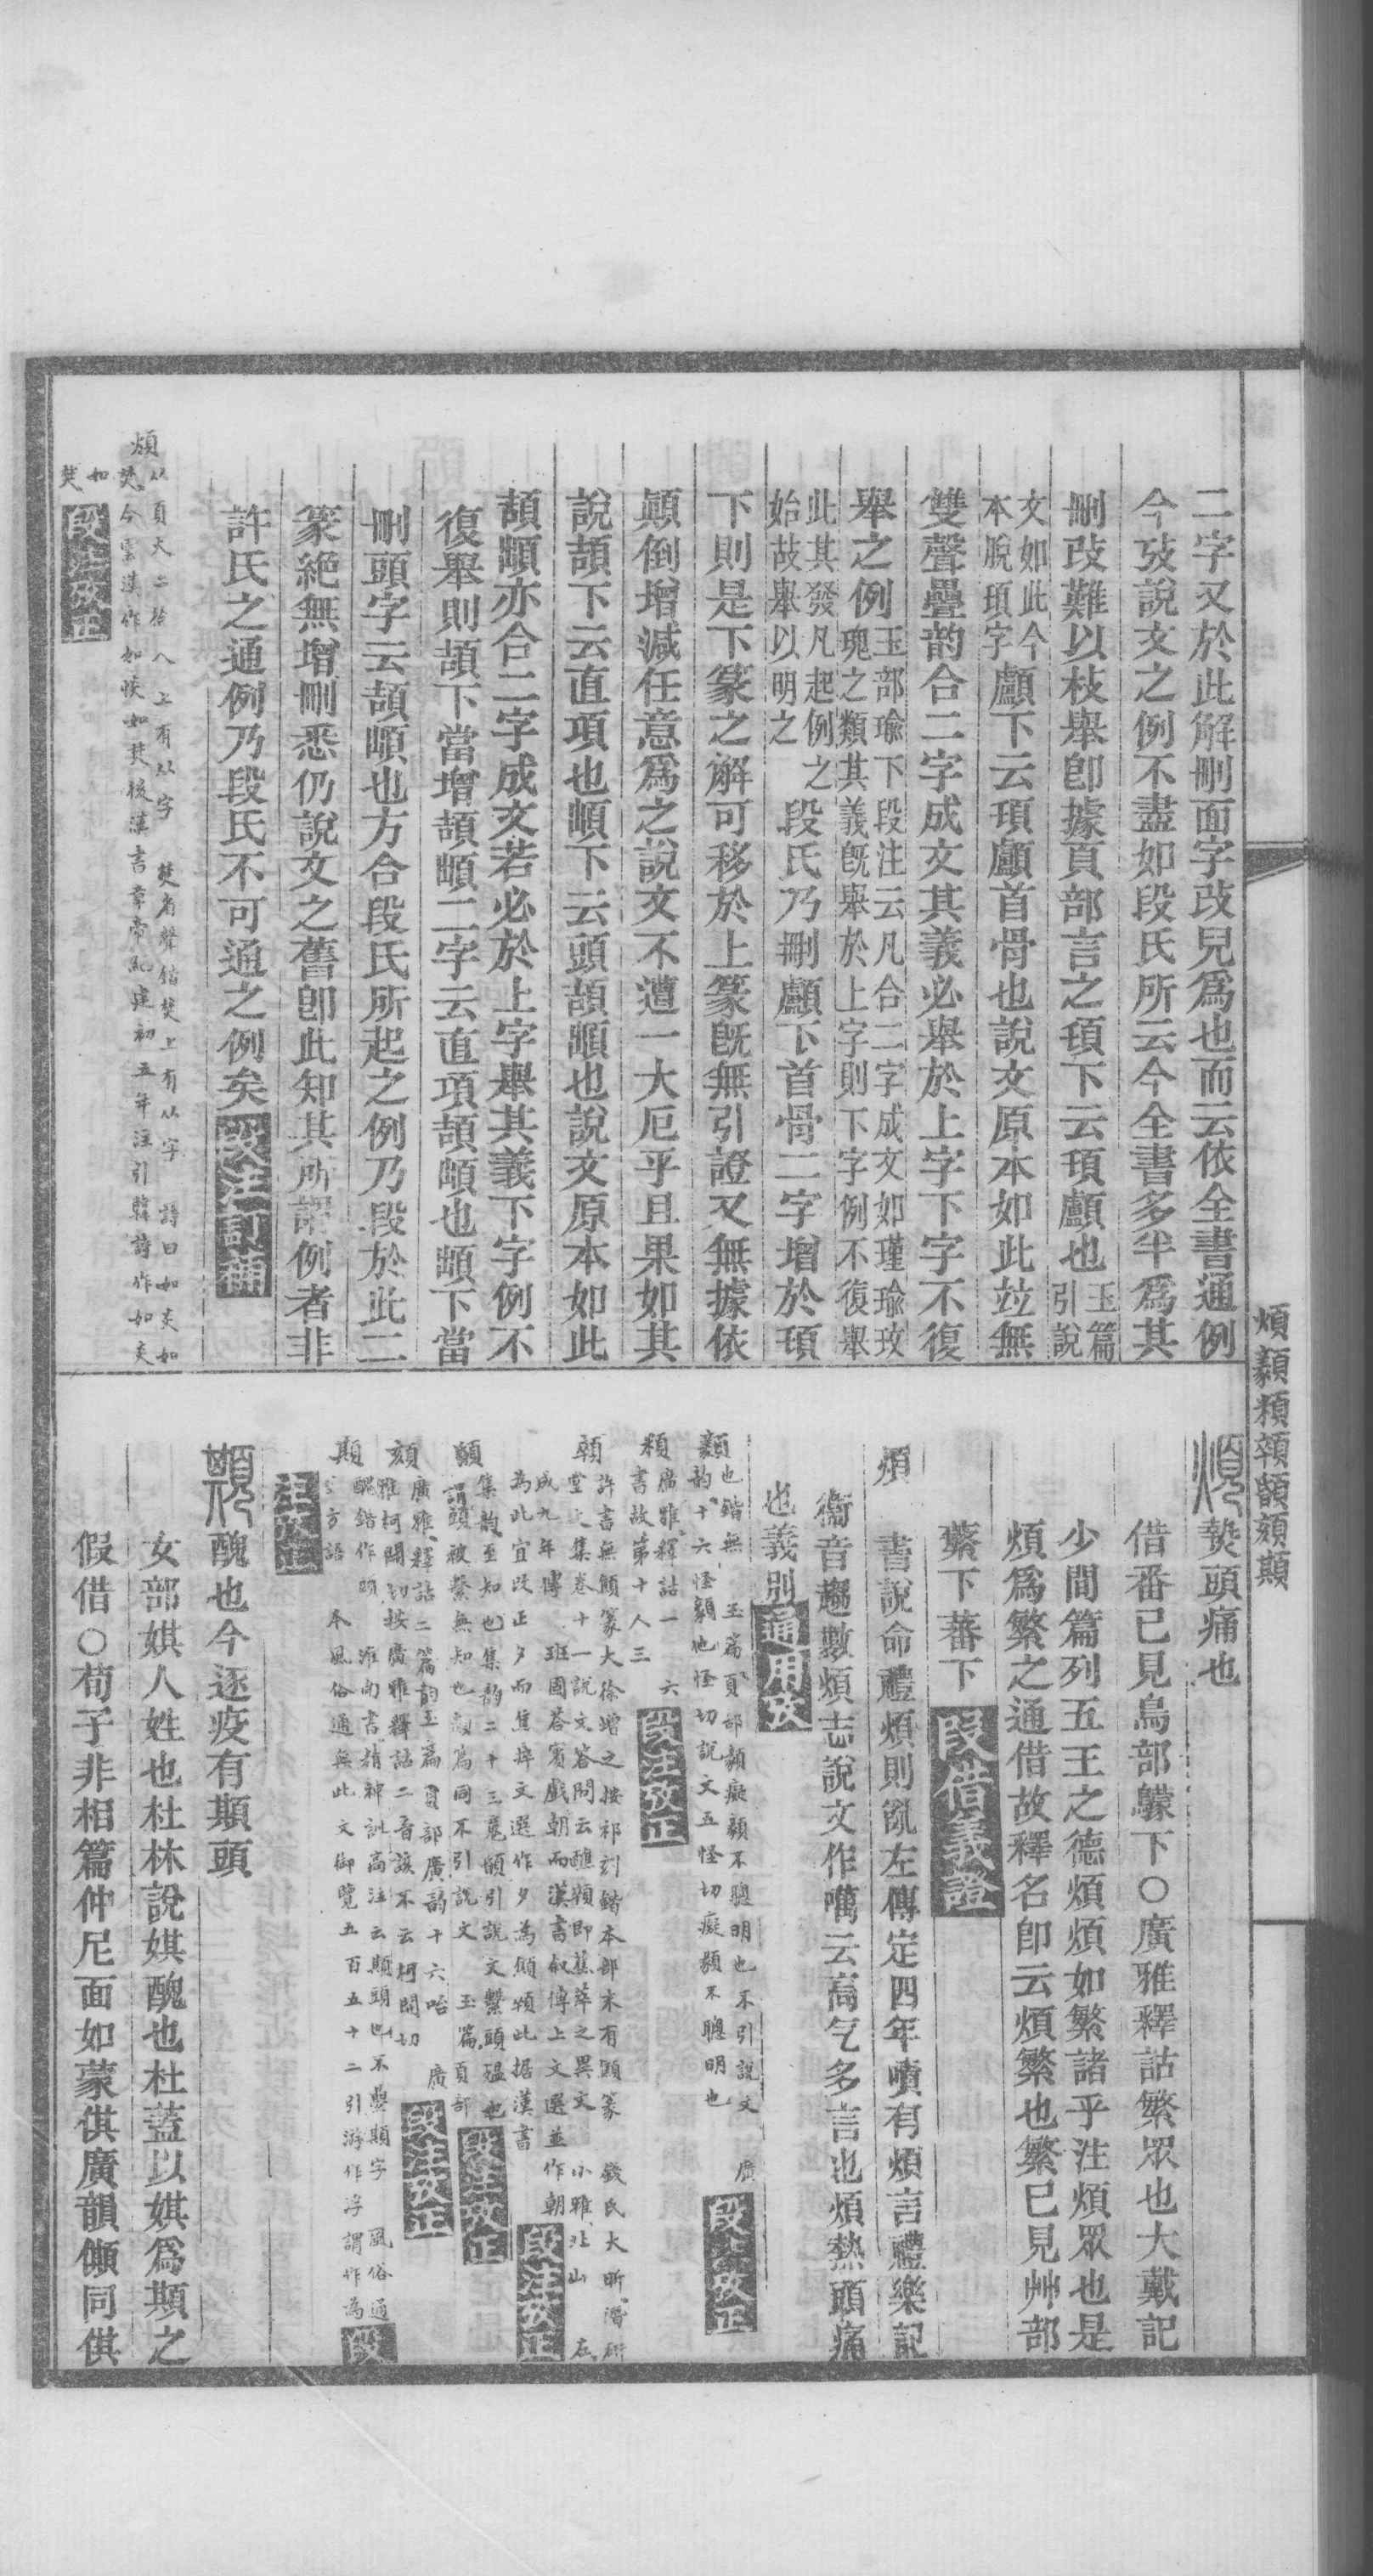 二字又於此解刪面字改皃爲也而云依全書通例
今攷說文之例不盡如段氏所云今全書多半爲其
刪改難以枝舉卽據頁部言之頊下云頊顱也玉篇引說
文如此今本脫頊字顱下云頊顱首骨也說文原本如此竝無
雙聲疊韵合二字成文其義必舉於上字下字不復
舉之例玉部瑜下段注云凡合二字成文如瑾瑜玫瑰之類其義既舉於上字則下字例不復舉
此其發凡起例之始故舉以明之段氏乃刪顱下首骨二字增於頊
下則是下篆之解可移於上篆既無引證又無據依
顚倒增減任意爲之說文不遭一大厄乎且果如其
說頡下云直項也頔下云頭頡頔也說文原本如此
頡頔亦合二字成文若必於上字舉其義下字例不
復舉則頡下當增頡頔二字云直項頡頔也頔下當
刪頭字云頡頔也方合段氏所起之例乃段於此二
篆絶無增刪悉仍說文之舊卽此知其所謂例者非
許氏之通例乃段氏不可通之例矣段注訂補
煩從頁火二於火上有从字 焚省聲鍇焚上有从字 詩曰如炎如
焚今雲漢作如惔如焚後漢書章帝紀建初五年注引韓詩作如炎
如焚段注攷正
煩䫶䫫頧顝頦䫏
煩
𤏡頭痛也
借番已見鳥部鷭下○廣雅釋詁繁眾也大戴記
少間篇列五王之德煩煩如繁諸乎注煩眾也是
煩爲繁之通借故釋名卽云煩繁也繁已見艸部
蘩下蕃下段借義證
煩 書說命禮煩則亂左傳定四年嘖有煩言禮樂記
衞音趨數煩志說文作囆云高气多言也煩熱頭痛
也義別通用攷
也鍇無 玉篇頁部 不聰明也不引說文 廣
韵十六怪 也怪切說文五怪切癡 不聰明也段注攷正
廣雅釋詁一 六
書故第十 人三段注攷正
許書無顦篆大徐增之按祁刻鍇本部末有顦篆 錢氏大昕潛研
堂文集卷十一說文答問云醮顇卽蕉萃之異文 小雅北山 左
成九年傳 班固荅賓戲朝而漢書叙傳上文選並作朝
爲此宜改正夕而焦瘁文選作夕爲顦顇此据漢書段注攷正
集韵至知也集韵二十三 引說文繫頭殟也
謂頭被繫無知也 爲同不引說文 玉篇頁部段注攷正
廣雅釋詁三篇韵玉篇頁部廣韵十六咍 廣
雅柯開切按廣雅釋詁二音該不云柯開切段注攷正
醜鍇作頭 淮南書精神訓高注云䫏頭也不疊䫏字 風俗通
方語 本風俗通無此文御覽五百五十二引游作浮謂作爲段
注攷正
䫏
醜也今逐疫有䫏頭
女部娸人姓也杜林說娸醜也杜蓋以娸爲䫏之
假借○荀子非相篇仲尼面如蒙倛廣韻 同倛